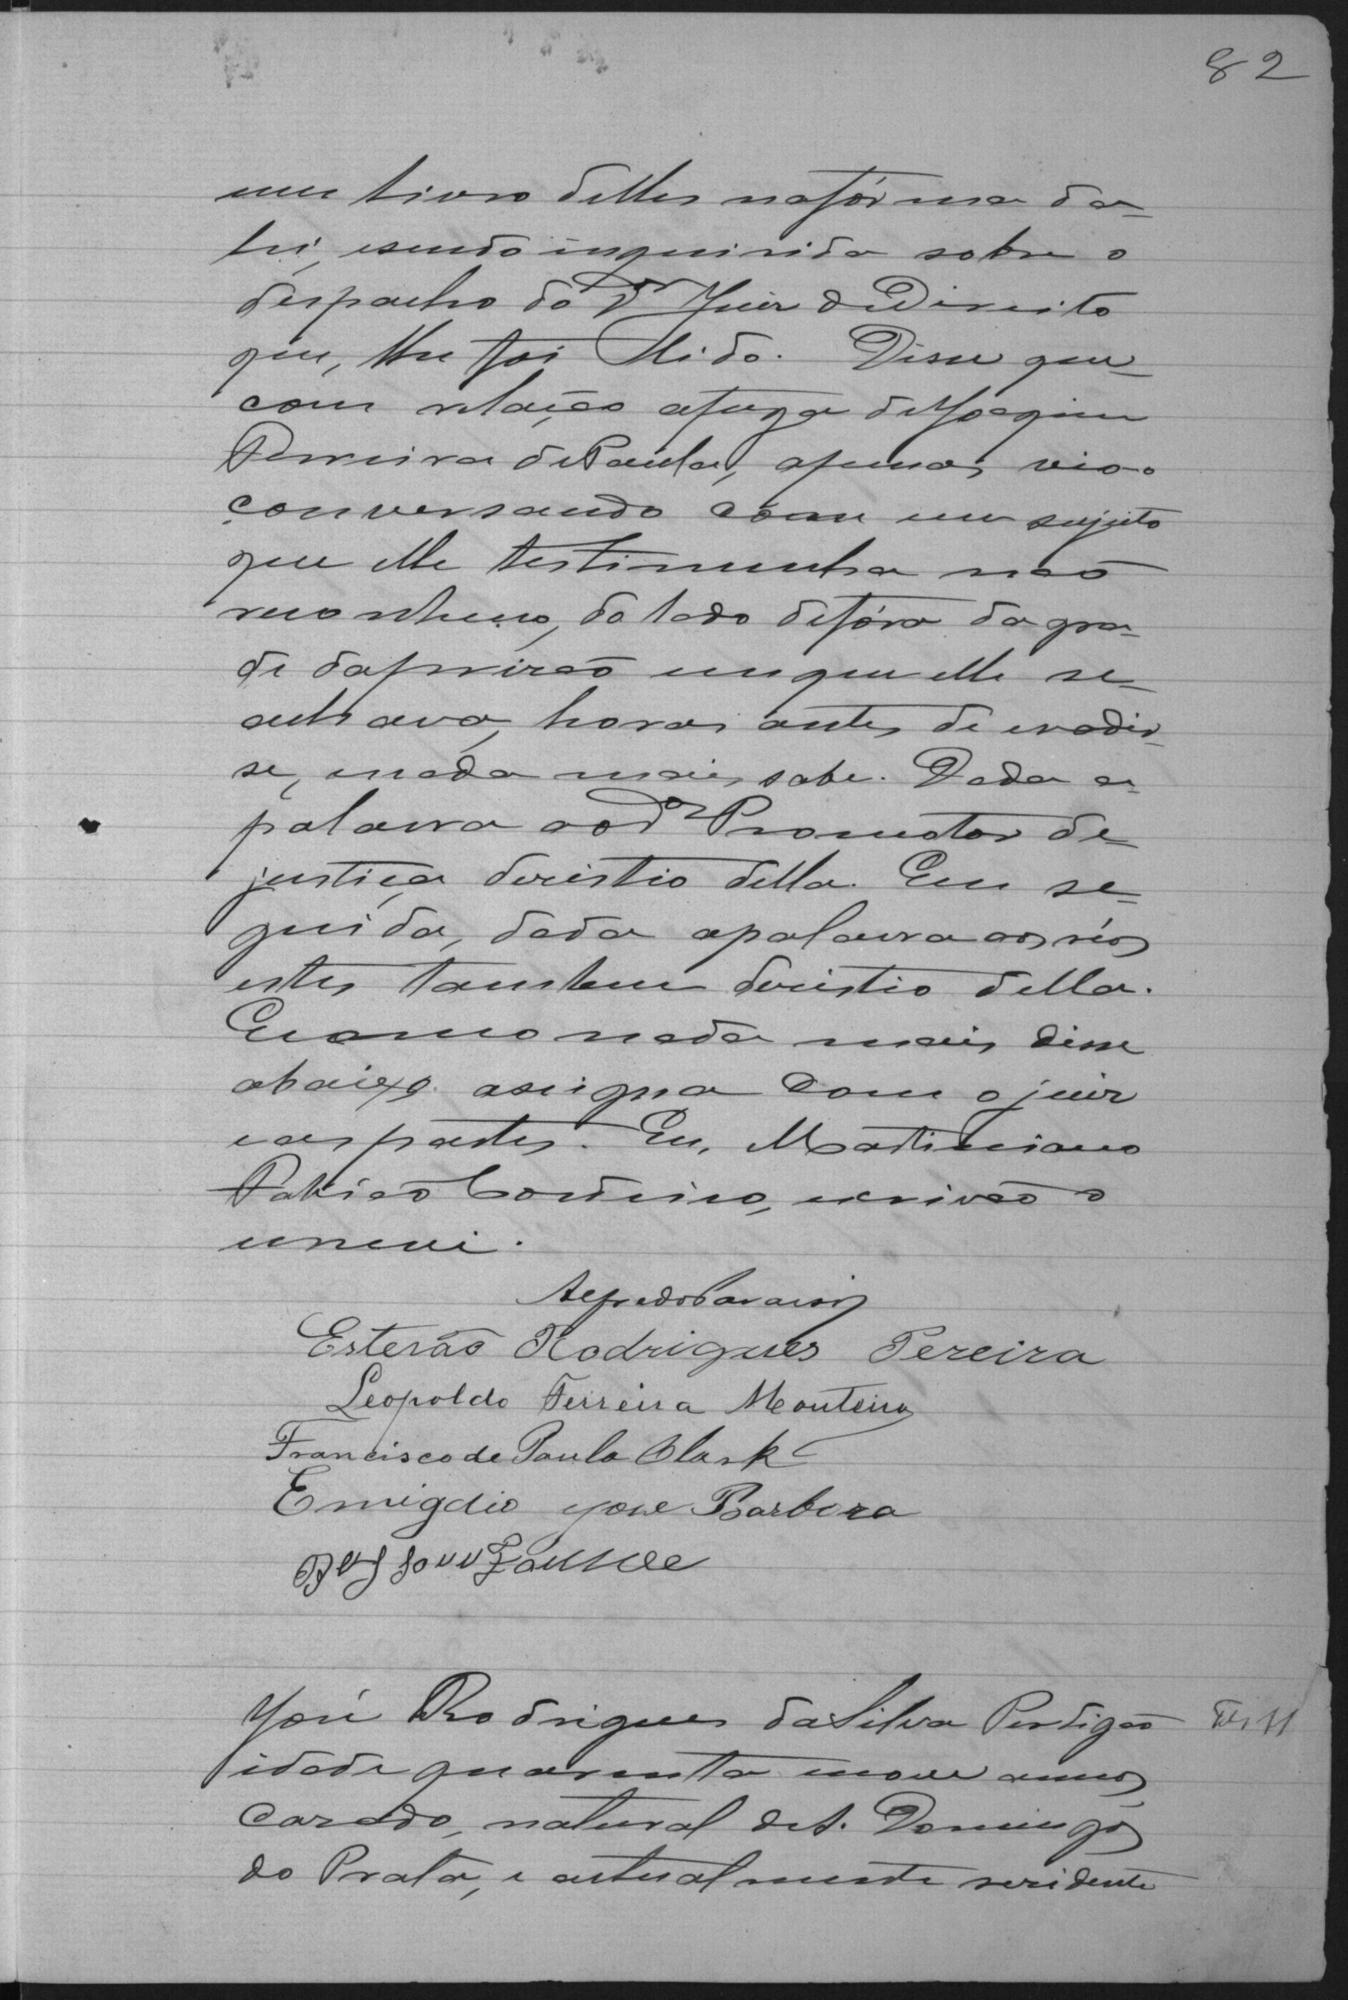 82
um livro delles nafórma da
lei, esendo inquirida sobre o
despacho do Dr Juiz de Direito
que, lhe foi lido. Disse que
com relação afuga deJoaquim
Ferreira dePaula, apenas vio-o
conversando com um sujeito
que elle testimunha não
reconheceo, do lado defóra da gra-
de daprizão emque elle se
achava, horas antes de evadir-
se, enada mais sabe. Dada a
palavra aodr Promotor de
justiça desistio della. Em se-
guida, dada apalavra aos réos
estes tambem desistio della.
Ecomo nada mais disse
abaixo assigna com o juiz
easpartes. Eu, Martiniano
Patricio Cordeiro, escrivão o
escrevi.
Alfredo
Estevão Rodrigues Pereira
Leopoldo Ferreira Monteiro
Francisco de Paula Clark
Emigdio José Barboza
José Rodrigues daSilva Perdigão
idade quarenta enove annos,
cazado, natural deS. Domingos
do Prata, e actualmente rezidente
Tes 11